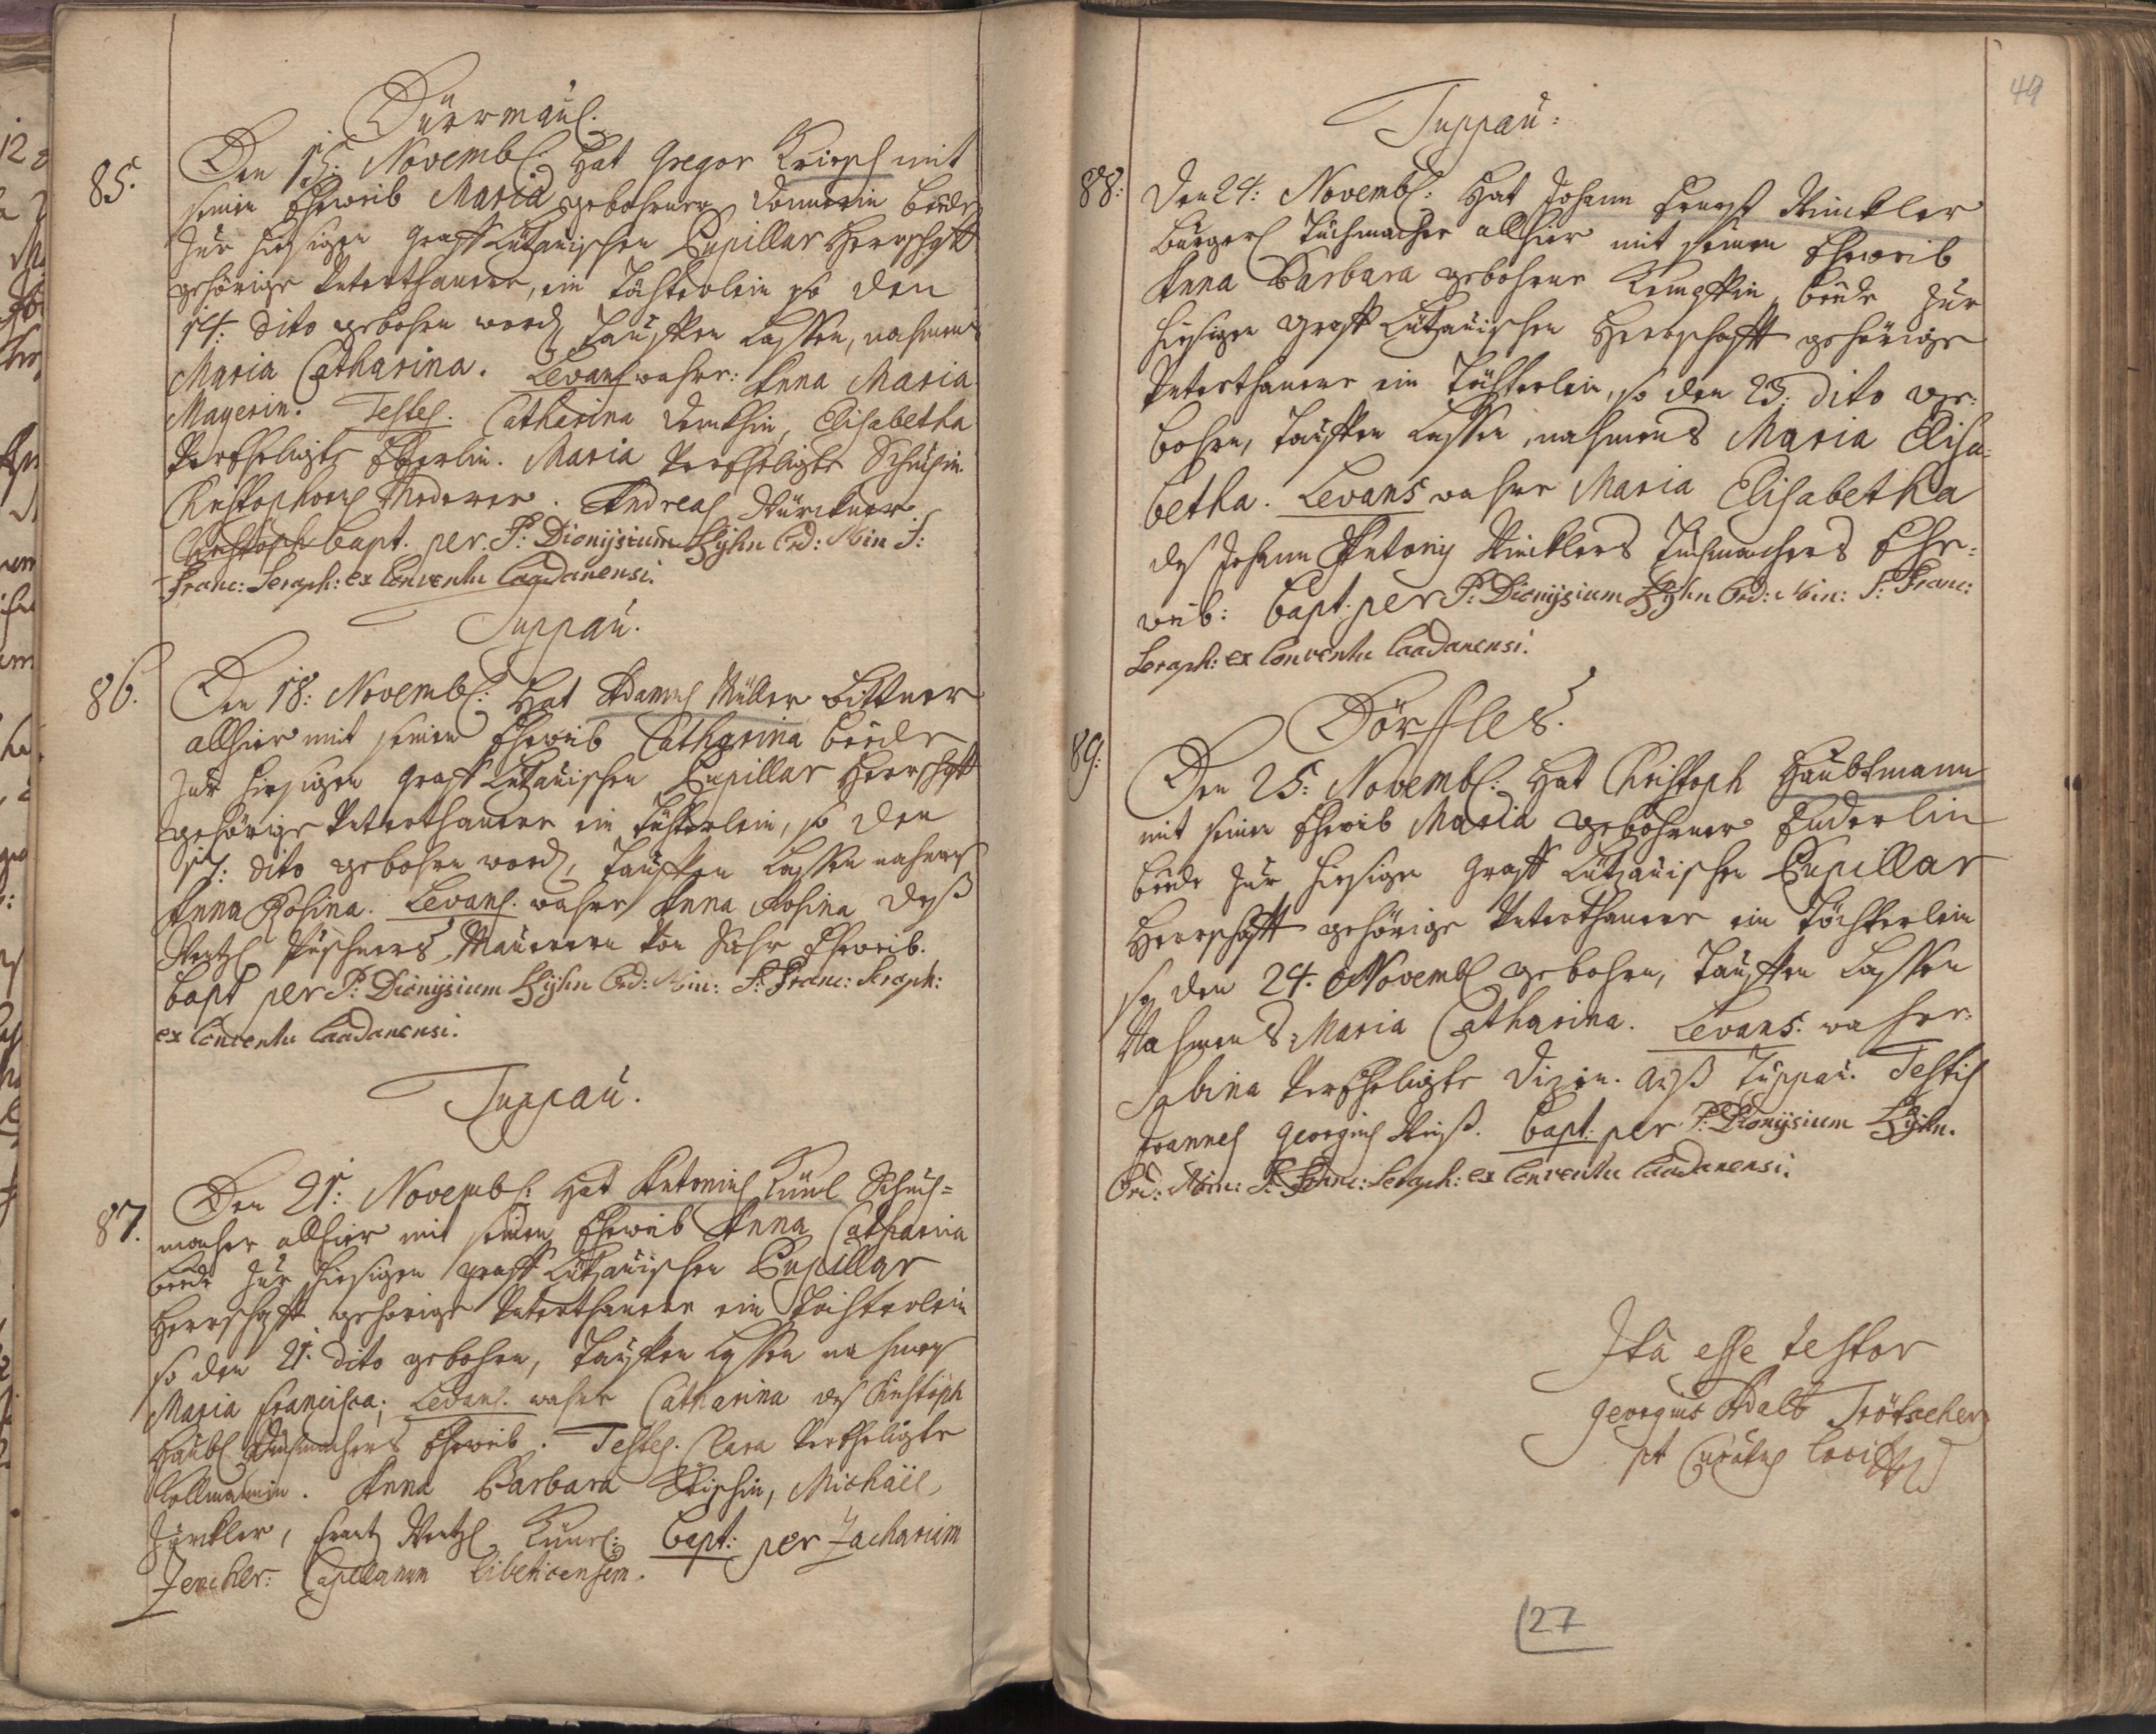 Dürrmaul.
85. Den 15: Novembr: Hat Gregor mit
seinen Eheweib Maria gebohrner Donnerin beede
zur hiesigen Graff Lützauischen Pupillar Herrschafft
gehörige Unterthanen, ein Töchterlein so den
14: dito gebohrn word, tauffen lassen, nahmens
Maria Catharina. Levans wahre: Anna Maria
Mayerin. Testes. Catharina, Elisabetha
Verehligte Eberlin. Maria Verehligte
Christophorus Mederer. Andreas
Christoph bapt. per P: Dionysium Hyhn Ord: Min S:
Franc: Seraph: ex Conventu Caadanensi.
Duppau.
86. Den 18: Novembr: Hat Adamus Müller Bittner
allhier mit seinen Eheweib Catharina beede
zur hiesigen Graff Lützauischen Pupillar Herrschafft
gehörige Unterthanen ein Töchterlein, so den
17: dito gebohrn word, tauffen lassen nahmens
Anna Rosina. Levans. wahre Anna Rosina deß
Wentzl Püschners Maurern von Eheweib.
bapt per P: Dionysium Hyhn Ord: Min: S: Franc: Seraph:
ex Conventu Caadanensi.
Duppau.
87. Den 21: Novembr: Hat Antonius Künl Schuch=
macher allhier mit seinen Eheweib Anna Catharina
beede zur hiesigen graff Lützauischen Pupillar
Herrschafft gehörige Unterthanen ein Töchterlein
so den 21. dito gebohrn, tauffen lassen nahmens
Maria Francisca; Levans. wahre Catharina des Christoph
Eheweib. Testes. Clara Verehligte
Anna Barbara, Michael
, Frantz Wentzl Künl: bapt: per Zachariam
Zencker: Capellanum Libenicensem.
49
Duppau:
88: Den 24: Novembr: Hat Johann Ernst Winckler
bürgerl Tuchmacher allhier mit seinen Eheweib
Anna Barbara gebohrne Kempffin, beede zur
hiesigen graff Lützauischen Herrschafft gehörige
Unterthanen ein Töchterlein, so den 23: dito ge=
bohrn, tauffen lassen, nahmens Maria Elisa=
betha. Levans wahre Maria Elisabetha
des Johann Antony Wincklers Tuchmachers Ehe=
weib: bapt: per P: Dionysium Hyhn Ord: Min: S: Franc:
Seraph: ex Conventu Caadanensi.
Dörffles.
89: Den 25: Novembr: Hat Christoph Haubtmann
mit seinen Eheweib Maria gebohrner Enderlin
beede zur hiesigen Graff Lützauischen Pupillar
Herrschafft gehörige Unterthanen ein Töchterlein
so den 24. Novembr gebohrn, tauffen lassen
Nahmens: Maria Catharina. Levans. wahre:
Sabina Verehligte auß Duppau. Testis
Joannes Georgius Weiß. bapt: per P: Dionysium Hyhn.
Ord: Min: S: Franc: Seraph: ex Conventu Caadanensi.
Ita esse testor
Georgius Adalb Trötscher
pt Curatus loci
27